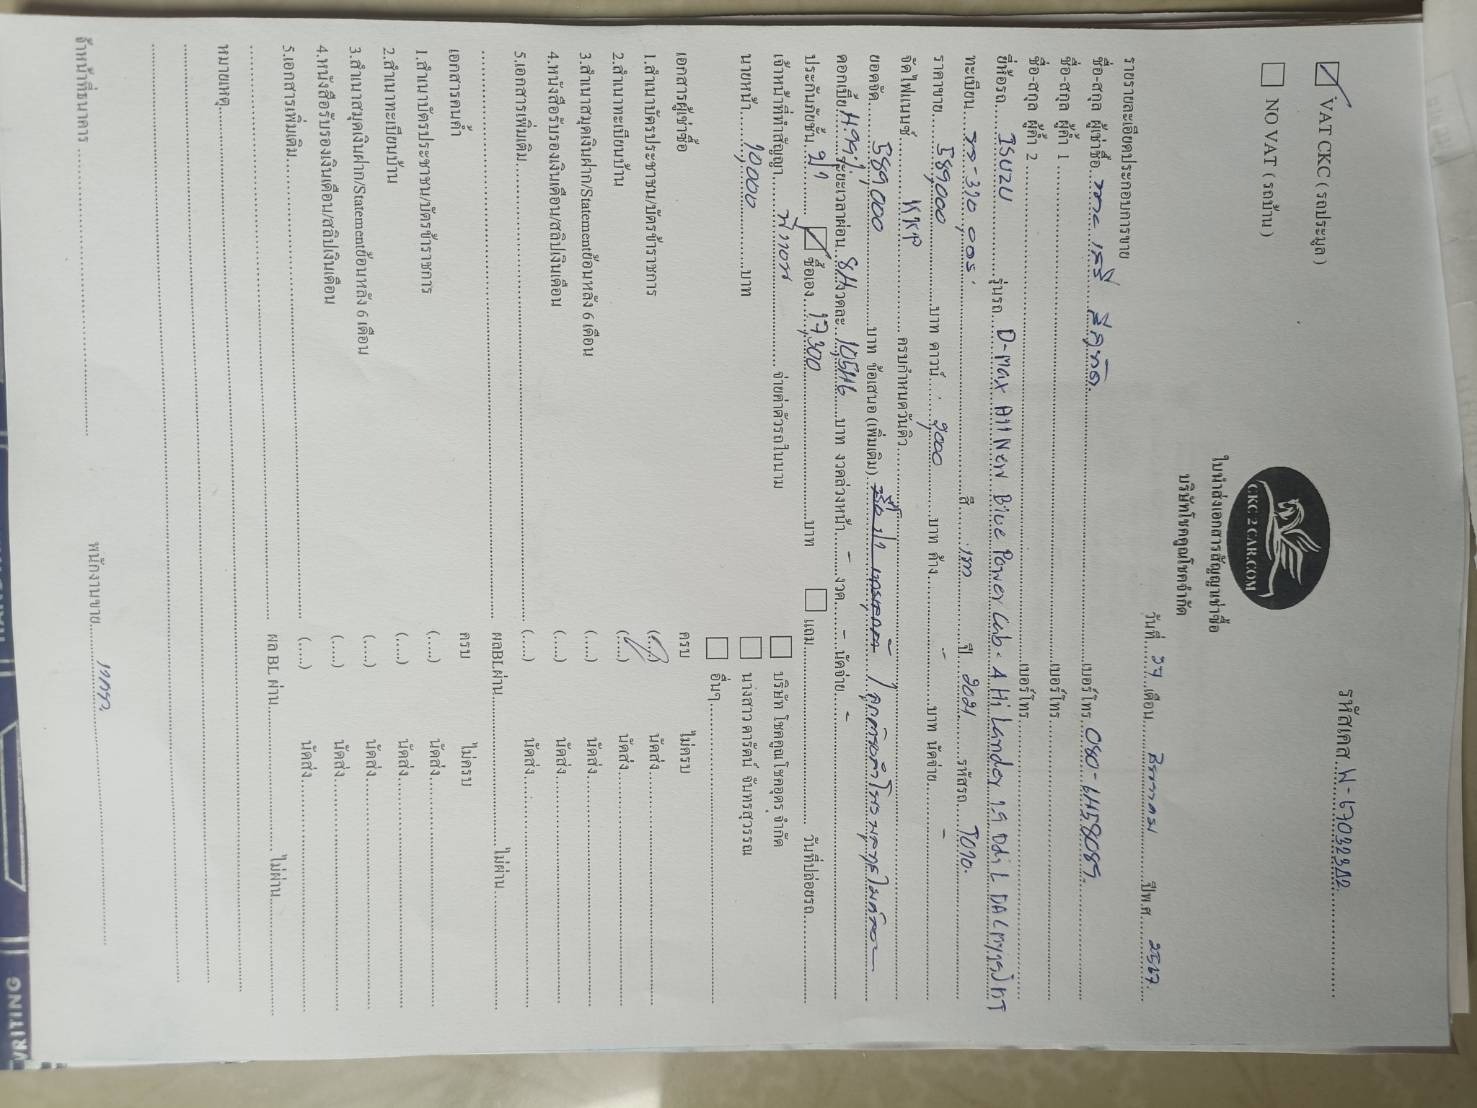 รหัสเคส N-670323A2
☑ VAT CKC ( รถประมูล )
☐ NO VAT ( รถบ้าน )
CKC 2 CAR.COM
ใบนำส่งเอกสารสัญญาเช่าซื้อ
บริษัทโชคคูณโชคจำกัด
วันที่ 27 เดือน มีนาคม ปีพ.ศ. 2567.
รายรายละเอียดประกอบการขาย
ชื่อ-สกุล ผู้เช่าซื้อ เบอร์โทร
ชื่อ-สกุล ผู้ค้ำ 1 เบอร์โทร
ชื่อ-สกุล ผู้ค้ำ 2 เบอร์โทร
ยี่ห้อรถ ISUZU รุ่นรถ D-Max All New Blue Power Cab. 4 Hi Lander 1.9 Ddi L DA MT
ทะเบียน สี เทา ปี 2021 รหัสรถ T010.
ราคาขาย 589,000 บาท ดาวน์ 2000 บาท ค้าง - บาท นัดจ่าย -
จัดไฟแนนซ์ KKP ครบกำหนดวันคิว
ยอดจัด 589,000 บาท ข้อเสนอ (เพิ่มเติม)
ดอกเบี้ย 4.99% ระยะเวลาผ่อน 84 งวดละ 10,546 บาท งวดล่วงหน้า - งวด - นัดจ่าย -
ประกันภัยชั้น ป1 ☑ ซื้อเอง 17,300 บาท ☐ แถม วันที่ปล่อยรถ
เจ้าหน้าที่ทำสัญญา จ่ายค่าตัวรถในนาม ☐ บริษัท โชคคูณโชคอุดร จำกัด
นายหน้า 10,000 บาท ☐ นางสาว ดารัตน์ จันทรสุวรรณ
☐ อื่นๆ
เอกสารผู้เช่าซื้อ ครบ ไม่ครบ
1.สำเนาบัตรประชาชน/บัตรข้าราชการ (....) นัดส่ง
2.สำเนาทะเบียนบ้าน (....) นัดส่ง
3.สำเนาสมุดเงินฝาก/Statementย้อนหลัง 6 เดือน (....) นัดส่ง
4.หนังสือรับรองเงินเดือน/สลิปเงินเดือน (....) นัดส่ง
5.เอกสารเพิ่มเติม (....) นัดส่ง
ผลBLผ่าน ไม่ผ่าน
เอกสารคนค้ำ ครบ ไม่ครบ
1.สำเนาบัตรประชาชน/บัตรข้าราชการ (....) นัดส่ง
2.สำเนาทะเบียนบ้าน (....) นัดส่ง
3.สำเนาสมุดเงินฝาก/Statementย้อนหลัง 6 เดือน (....) นัดส่ง
4.หนังสือรับรองเงินเดือน/สลิปเงินเดือน (....) นัดส่ง
5.เอกสารเพิ่มเติม (....) นัดส่ง
ผล BL ผ่าน ไม่ผ่าน
หมายเหตุ
จ้าหน้าที่ธนาคาร พนักงานขาย
WRITING